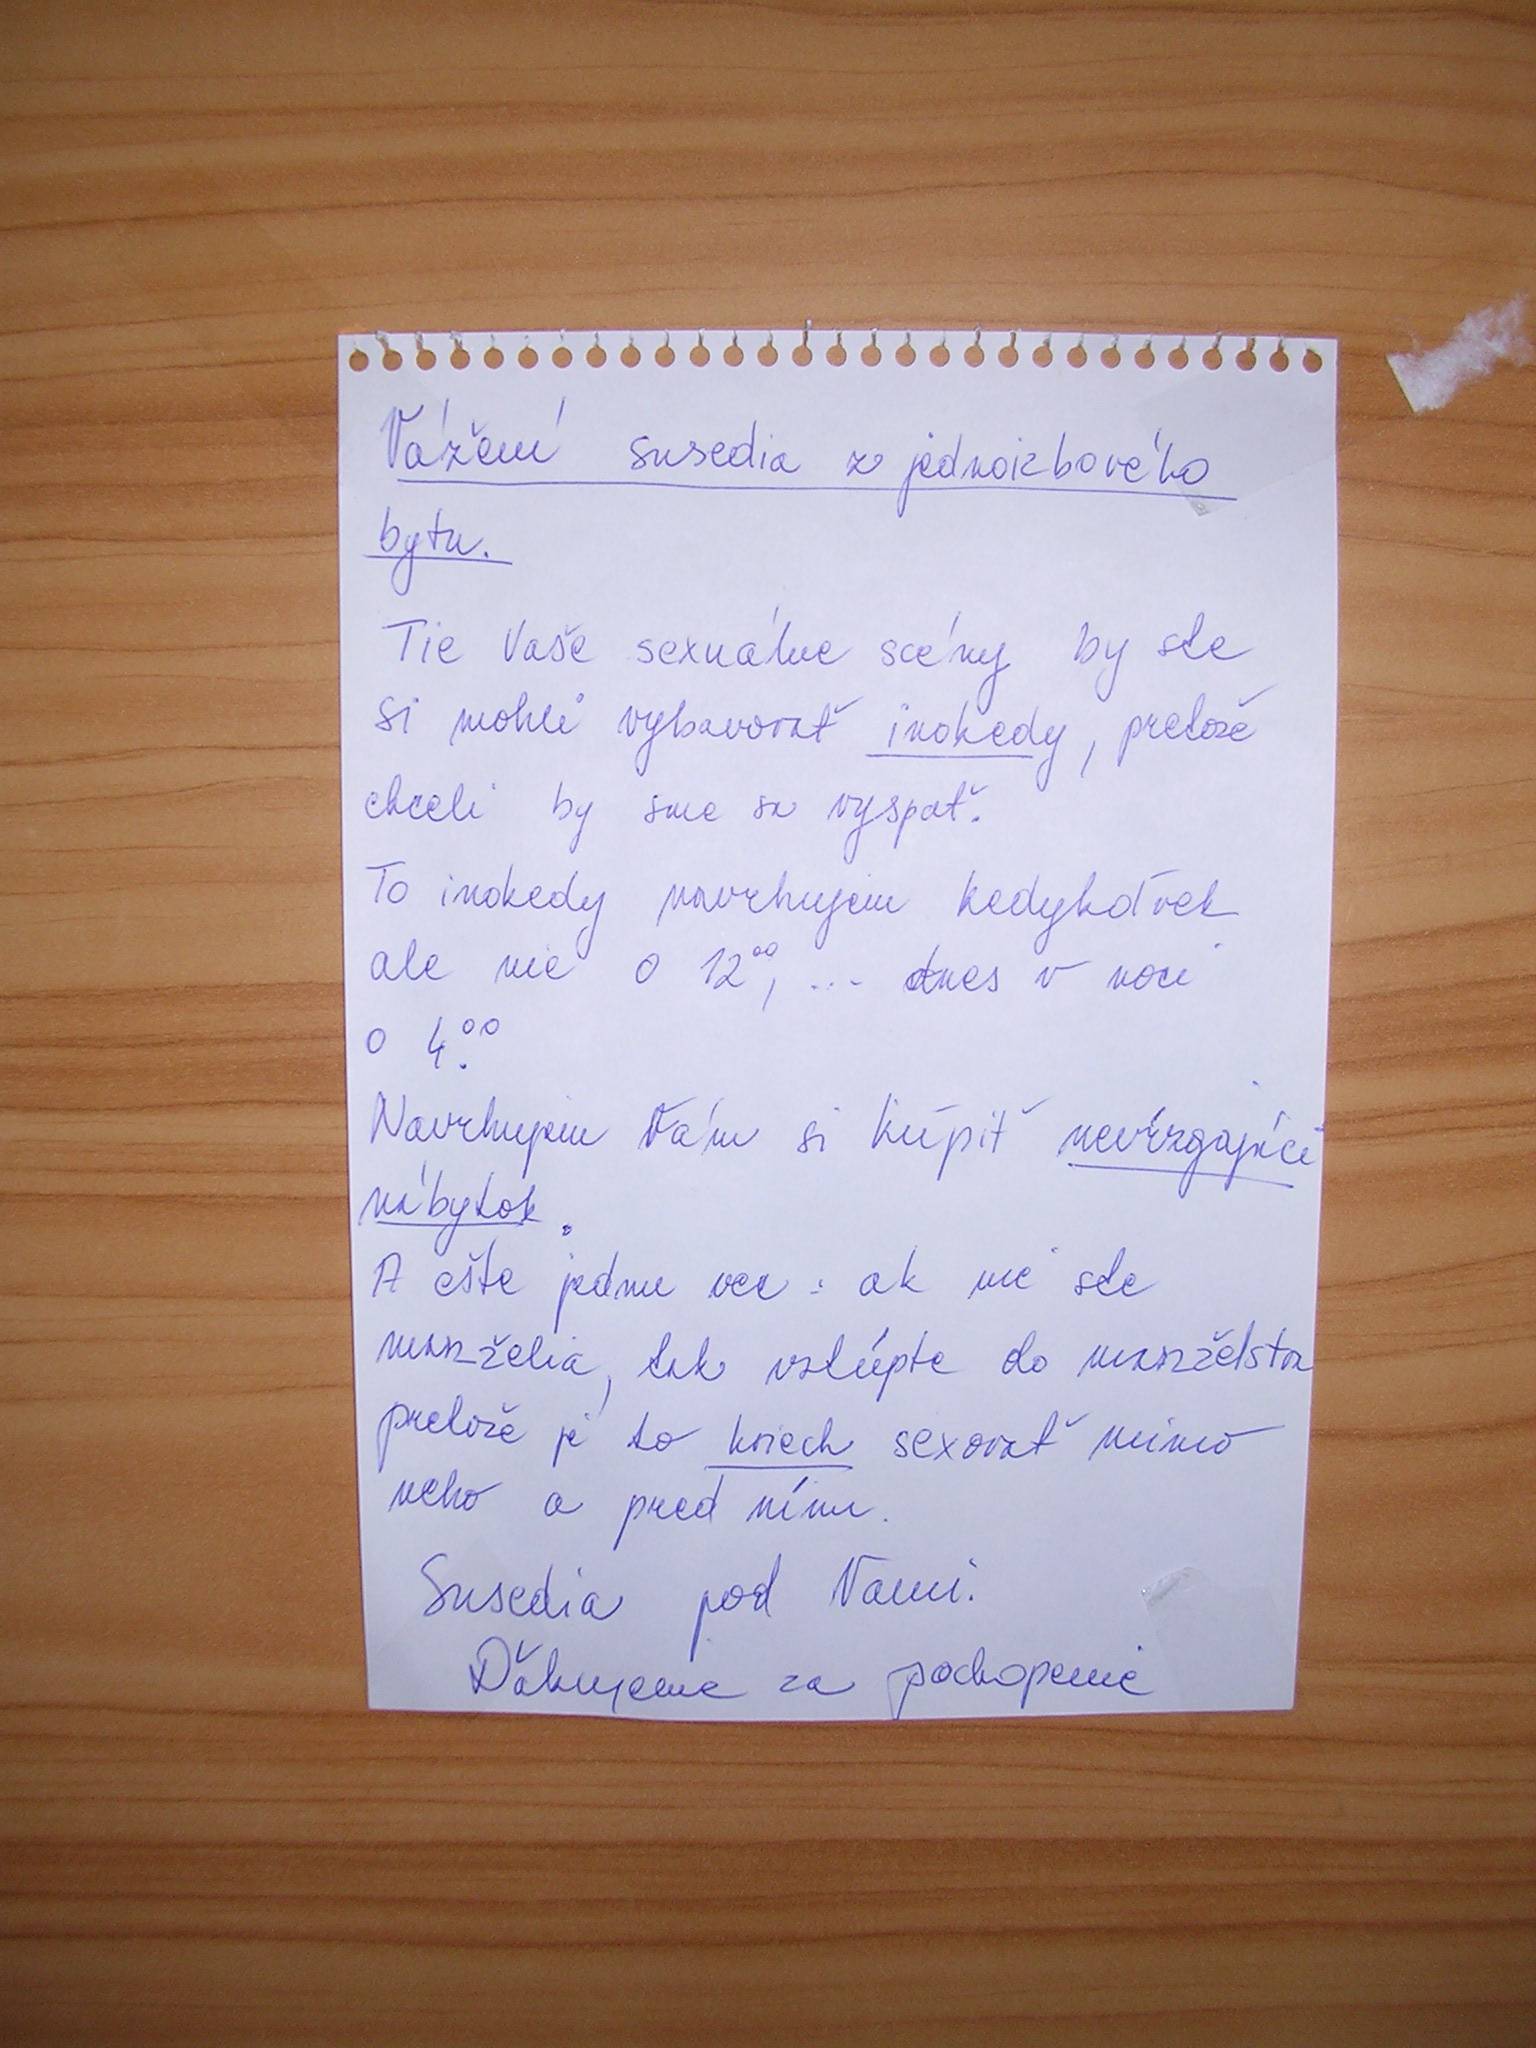 Vážení susedia z jednoizbového
bytu.
Tie Vaše sexuálne scény by ste
si mohli vybavovať inokedy, pretože
chceli by sme sa vyspať.
To inokedy navrhujem kedykoľvek
ale nie o 12⁰⁰, ... dnes v noci
o 4.⁰⁰
Navrhujem Vám si kúpiť nevŕzgajúci
nábytok.
A ešte jednu vec: ak nie ste
manželia, tak vstúpte do manželstva
pretože je to hriech sexovať mimo
neho a pred ním.
Susedia pod Vami.
Ďakujeme za pochopenie